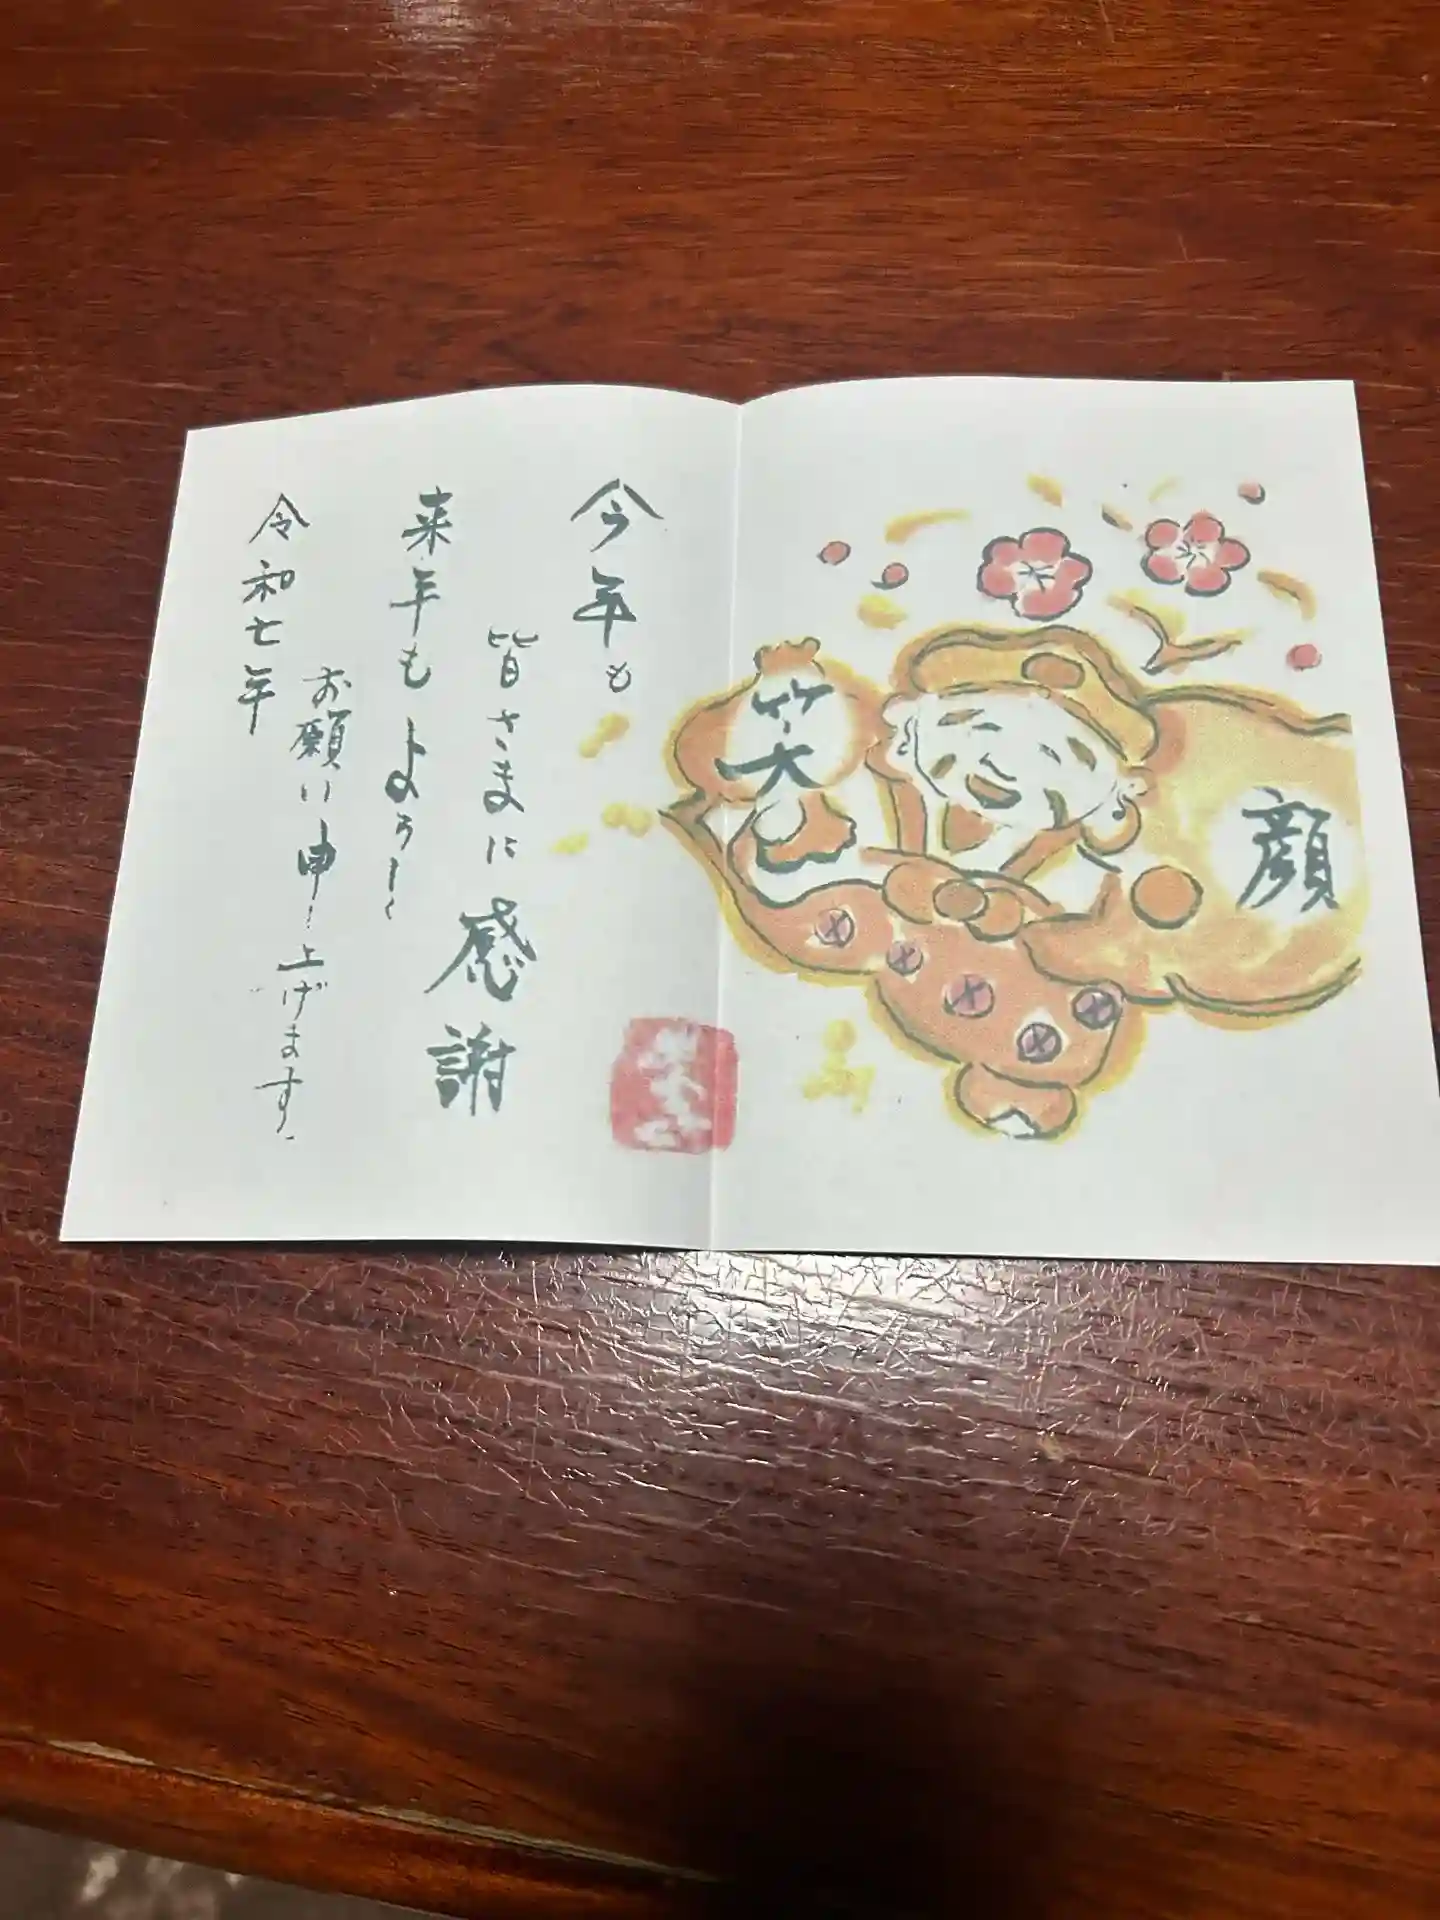 笑
顔
今年も
皆さまに感謝
来年もよろしく
お願い申し上げます。
令和七年